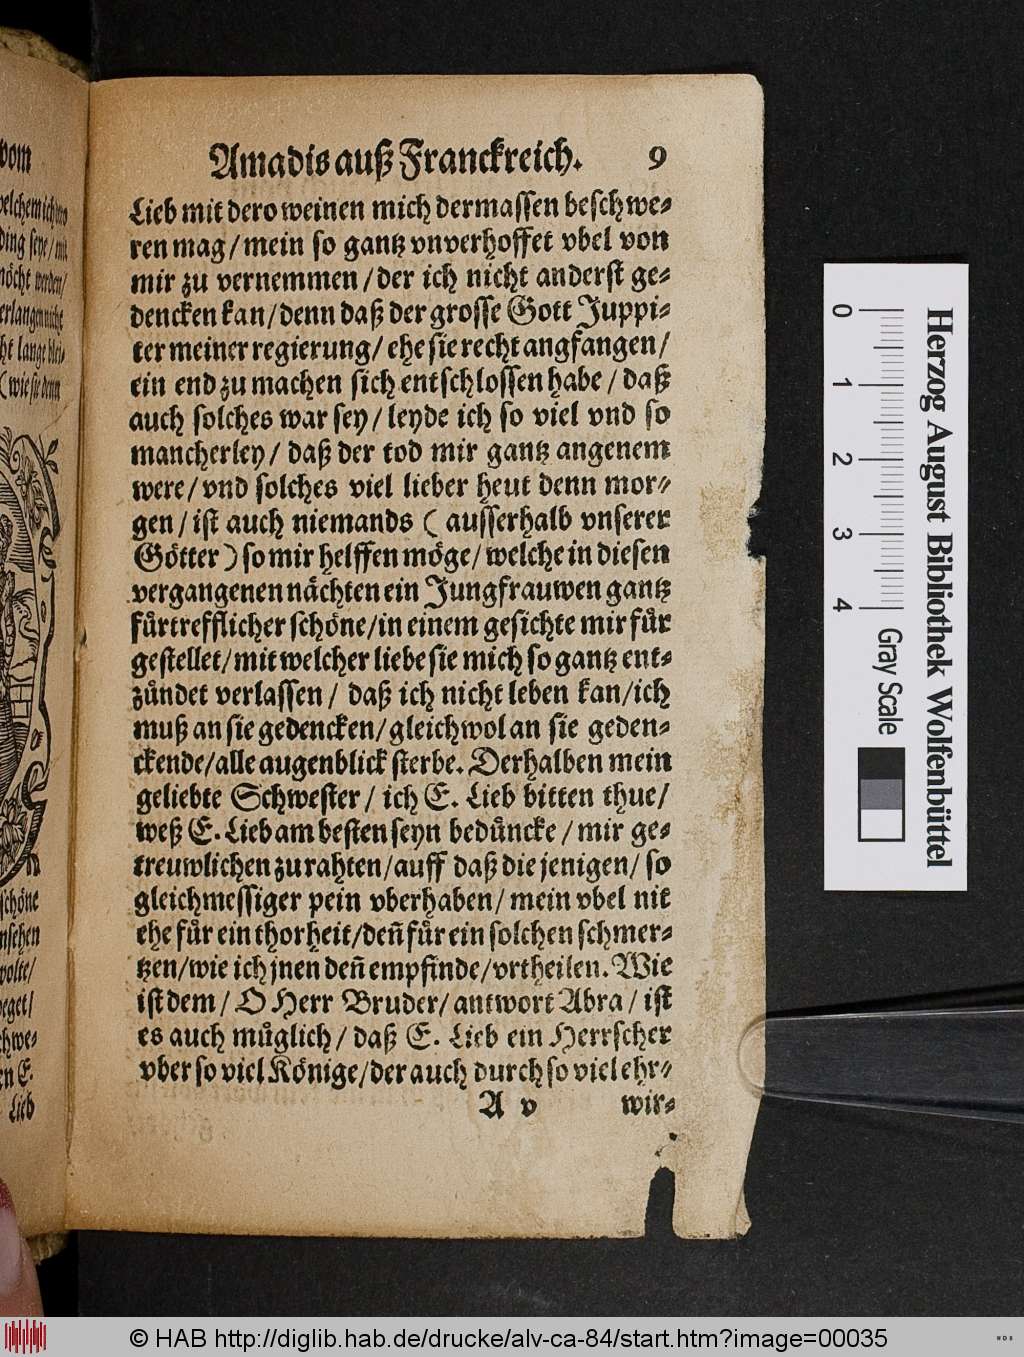 Amadis auß Franckreich. 9
Lieb mit dero weinen mich dermassen beschwe-
ren mag / mein so gantz vnverhoffet vbel von
mir zu vernemmen / der ich nicht anderst ge-
dencken kan / denn daß der grosse Gott Juppi-
ter meiner regierung / ehe sie recht angfangen /
ein end zu machen sich entschlossen habe / daß
auch solches war sey / leyde ich so viel vnd so
mancherley / daß der tod mir gantz angenem
were / vnd solches viel lieber heut denn mor-
gen / ist auch niemands ( ausserhalb vnserer
Götter ) so mir helffen möge / welche in diesen
vergangenen nächten ein Jungfrauwen gantz
fürtrefflicher schöne / in einem gesichte mir für
gestellet / mit welcher liebe sie mich so gantz ent-
zündet verlassen / daß ich nicht leben kan / ich
muß an sie gedencken / gleichwol an sie geden-
ckende / alle augenblick sterbe. Derhalben mein
geliebte Schwester / ich E. Lieb bitten thue /
weß E. Lieb am besten seyn bedüncke / mir ge-
treuwlichen zu rahten / auff daß die jenigen / so
gleichmessiger pein vberhaben / mein vbel nit
ehe für ein thorheit / deñ für ein solchen schmer-
tzen / wie ich jnen deñ empfinde / vrtheilen. Wie
ist dem / O Herr Bruder / antwort Abra / ist
es auch müglich / daß E. Lieb ein Herrscher
vber so viel Könige / der auch durch so viel ehr-
A v wir-
vom
möcht werden /
ht lange blei-
( wie sie denn
schöne
wolte /
Lieb
0 1 2 3 4 Gray Scale
Herzog August Bibliothek Wolfenbüttel
© HAB http://diglib.hab.de/drucke/alv-ca-84/start.htm?image=00035